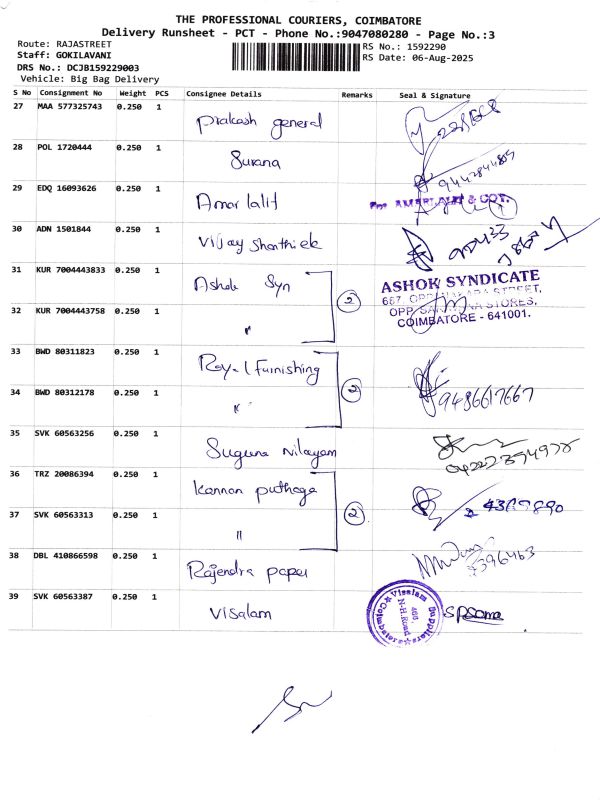 THE PROFESSIONAL COURIERS, COIMBATORE
Delivery Runsheet - PCT - Phone No.:9047080280 - Page No.:3
Route: RAJASTREET RS No.: 1592290
Staff: GOKILAVANI RS Date: 06-Aug-2025
DRS No.: DCJB159229003
Vehicle: Big Bag Delivery
S No Consignment No Weight PCS Consignee Details Remarks Seal & Signature
27 MAA 577325743 0.250 1 Prakash general
28 POL 1720444 0.250 1 Surana
29 EDQ 16093626 0.250 1 Amar lalit
30 ADN 1501844 0.250 1 Vijay
31 KUR 7004443833 0.250 1 Ashok Syn 2 ASHOK SYNDICATE
32 KUR 7004443758 0.250 1 " COIMBATORE - 641001.
33 BWD 80311823 0.250 1 Royal Furnishing
34 BWD 80312178 0.250 1 " 2 9486617667
35 SVK 60563256 0.250 1 Suguna Nilayam
36 TRZ 20086394 0.250 1 Kannan puthaga
37 SVK 60563313 0.250 1 " 2
38 DBL 410866598 0.250 1 Rajendra paper
39 SVK 60563387 0.250 1 Visalam Visalam Suppliers 466, N.H.Road Coimbatore